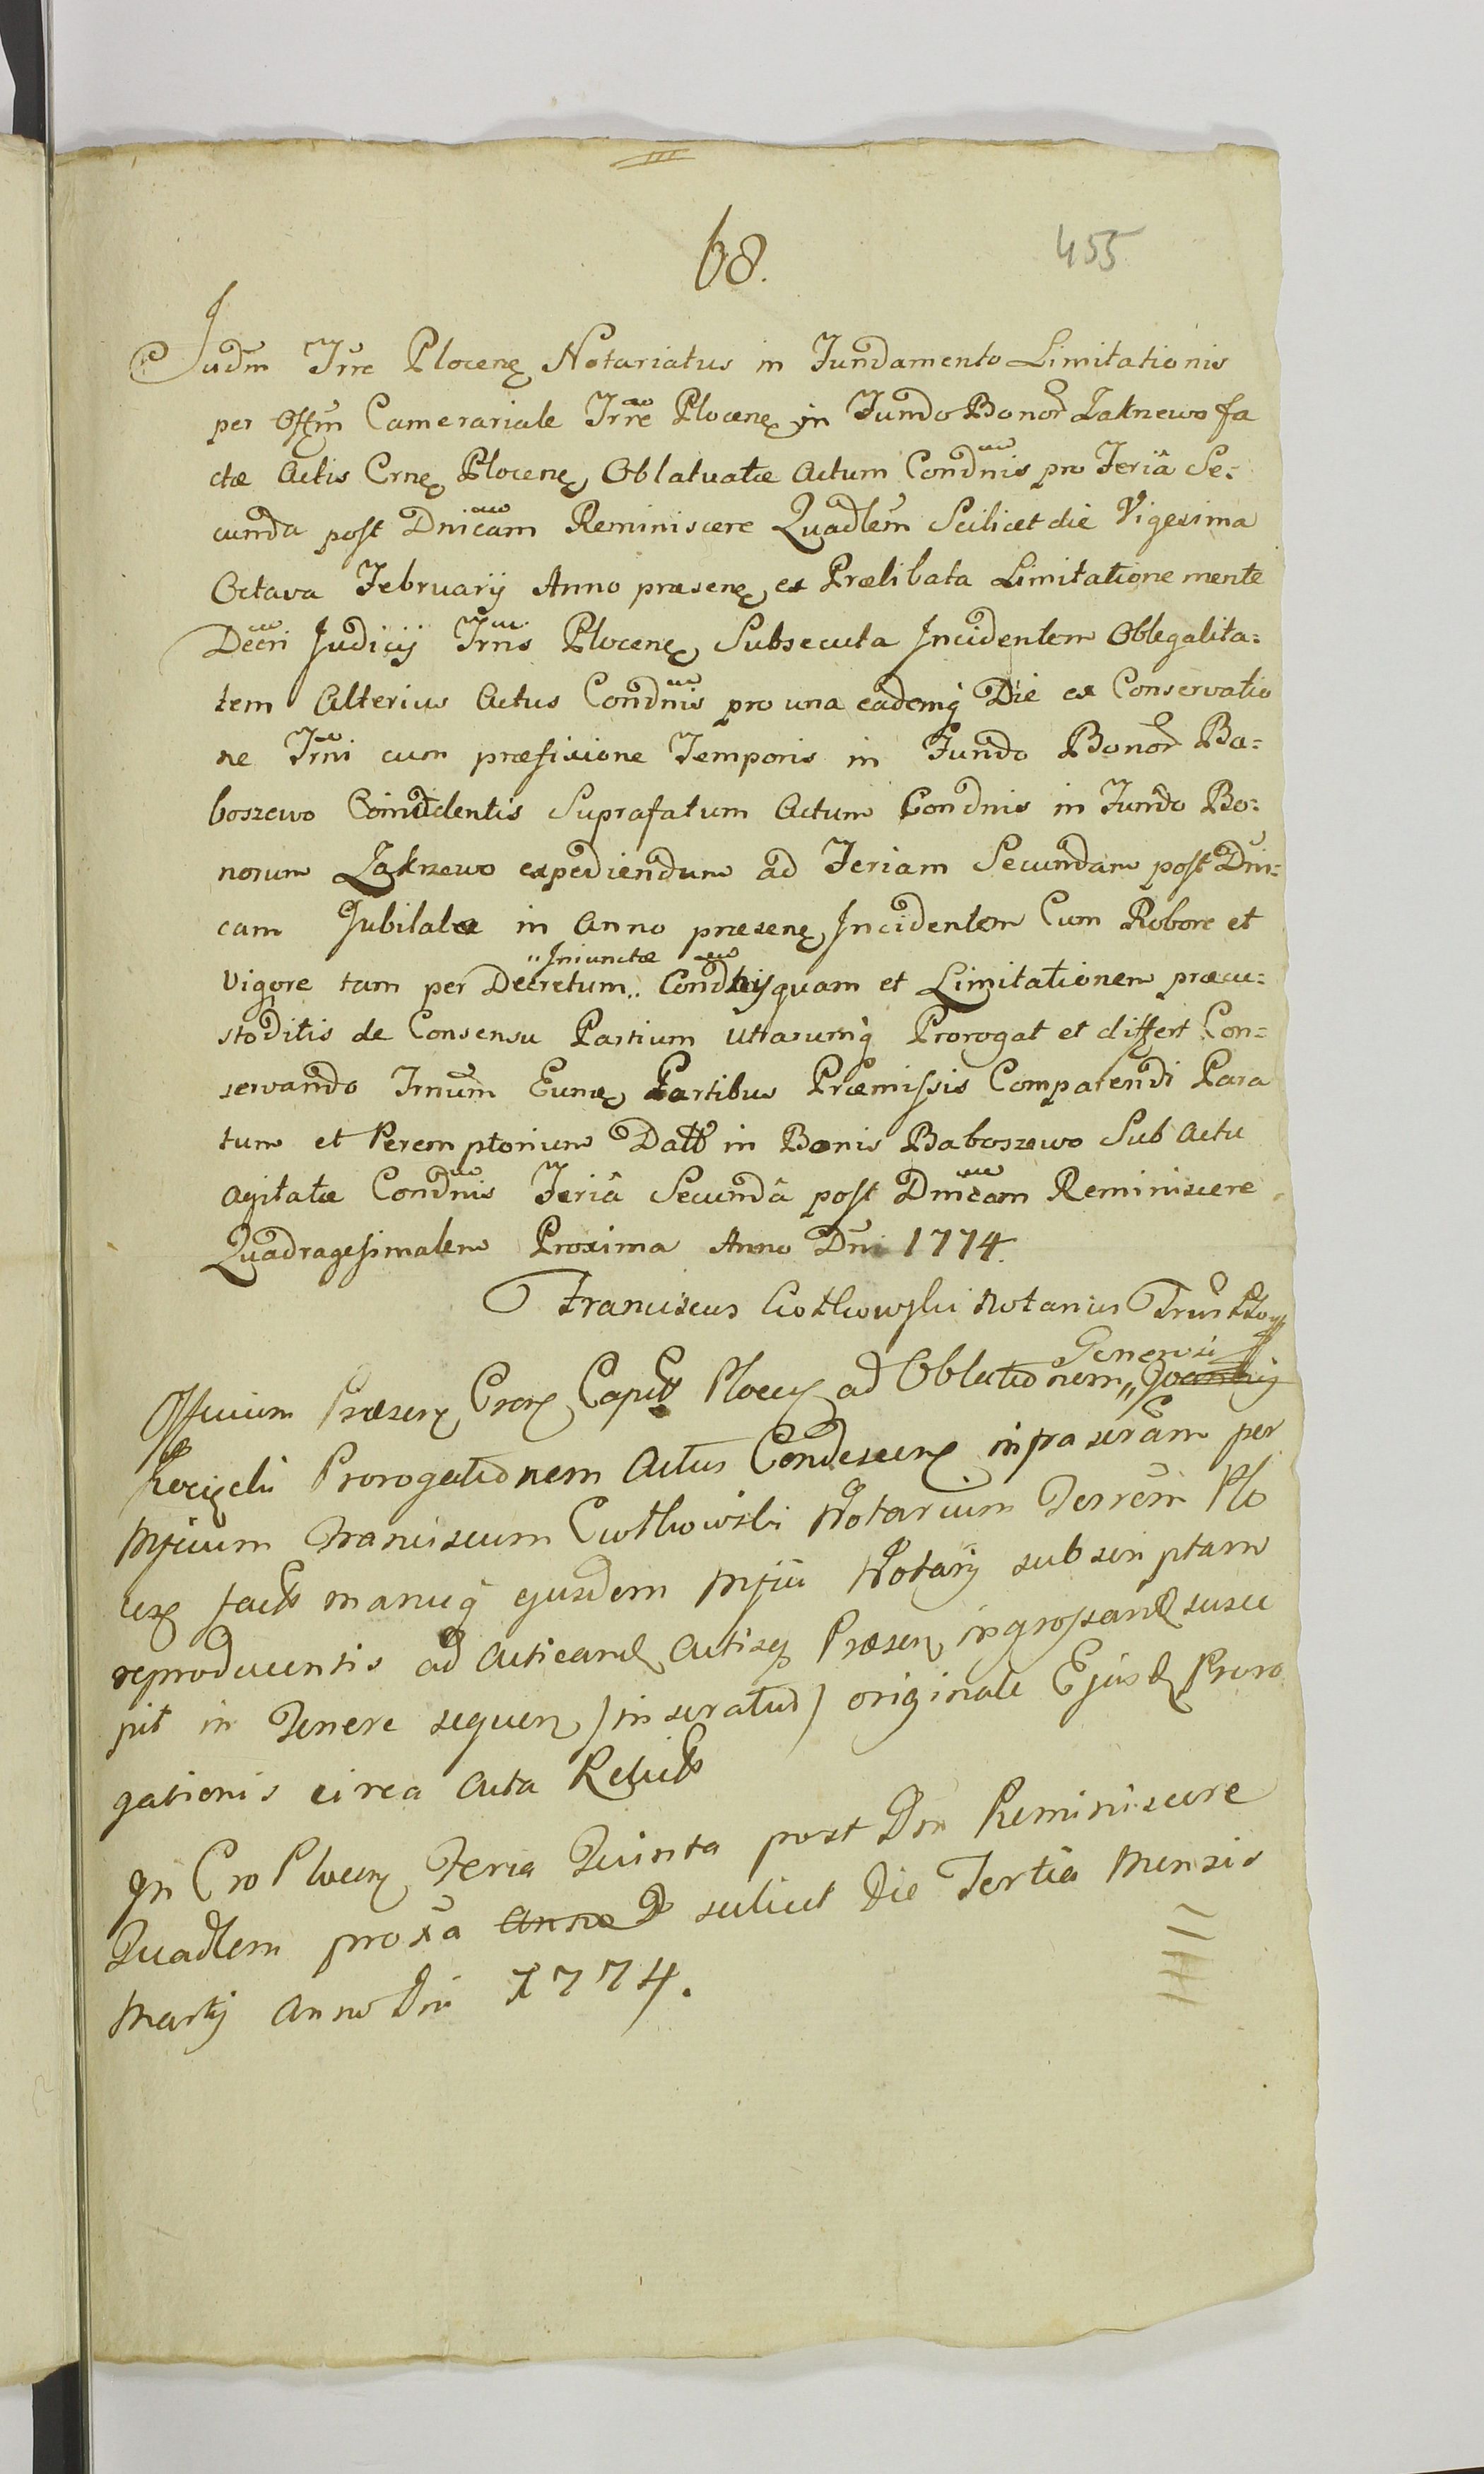 68.
455
Judm Trre Plocenę Notariatus in Fundamento Limitationis
per Offm Camerariale Trre Plocenę in Fundo Bonor Zaknewo fa
ctæ Actis Crnę Plocenę Oblatuatæ Actum Condnis pro Feriâ Se:
cunda post Dnicam Reminiscere Quadlem Scilicet die Vigesima
Octava Februarij Anno præsenę ex Prælibata Limitatione mente
Decri Judicij Trnis Plocenę Subsecuta Incidentem Oblegalita:
tem Alterius Actus Condnis pro una eademq Die ex Conservatio
ne Trni cum præfixione Temporis in Fundo Bonor Ba:
boszewo Coincidentis Suprafatum Actum Condnis in Fundo Bo:
norum Zaknewo expediendum ad Feriam Secundam post Dni:
cam Jubilatæ in Anno præsenę Incidentem Cum Robore et
"Iniunctæ
Vigore tam per Decretum " Condnis quam et Limitationem præcu:
stoditis de Consensu Partium Utrarumq Prorogat et differt Con:
servando Trnum Eumę Partibus Præmissis Comparendi Para
tum et Peremptorium Datt in Bonis Baboszewo Sub Actu
Agitatæ Condnis Feriâ Secundâ post Dnicam Reminiscere
Quadragesimalem Proxima Anno Dni 1774.
Franciscus Notarius
Generosi
Officium Præsenę Crę Capit Plocę ad Oblationem "
Prorogationem Actus Condescenę infrascram per
Mficum Franciscum Notarium Terrem Plo
cenę fact manuq ejusdem Mfici Notarij subscriptam
reproducentis ad Acticand Actisq Præsenę ingrossand susce
pit in Tenere sequenę (inseratur) originale Ejusd Proro
gationis circa Acta Relict
In Cro Plocenę Feria Quinta post Dni Reminiscere
Quadlem proxa Anno D scilicet Die Tertia Mensis
Martij Anno Dni 1774.